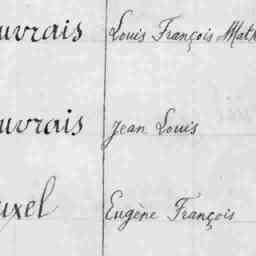 uvrais Louis François Math
uvrais Jean Louis
uxel Eugène François